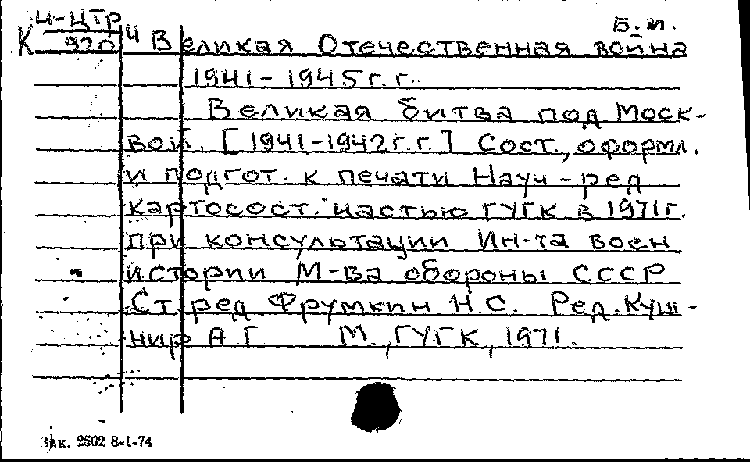 Ц-ЦТР Б.М.
К 920 Ч Великая Отечественная война
1941-1945г.г.
Великая битва под Моск-
вой. [1941-1942г.г.] Сост., оформл.
и подгот. к печати Науч-ред
картосост. частью ГУГК в 1971г.
при консультации Ин-та воен
истории М-ва обороны СССР
Ст. ред Фрумкин Н.С. Ред. Куш-
нир А Г М., ГУГК, 1971.
Зак. 2602 8-1-74